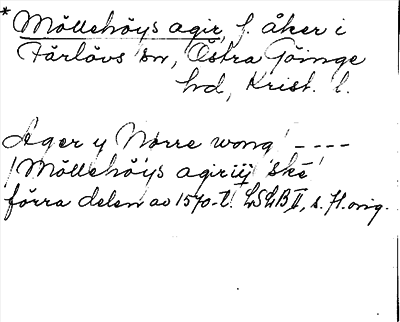 *Möllehöys agir, f. åker i
Färlövs sn, Östra Göinge
hd, Krist. l.
Ager y Norre wong ----
/Möllehöys agir iij ske
förra delen av 1570-t. LSLB II, s. 71. orig.